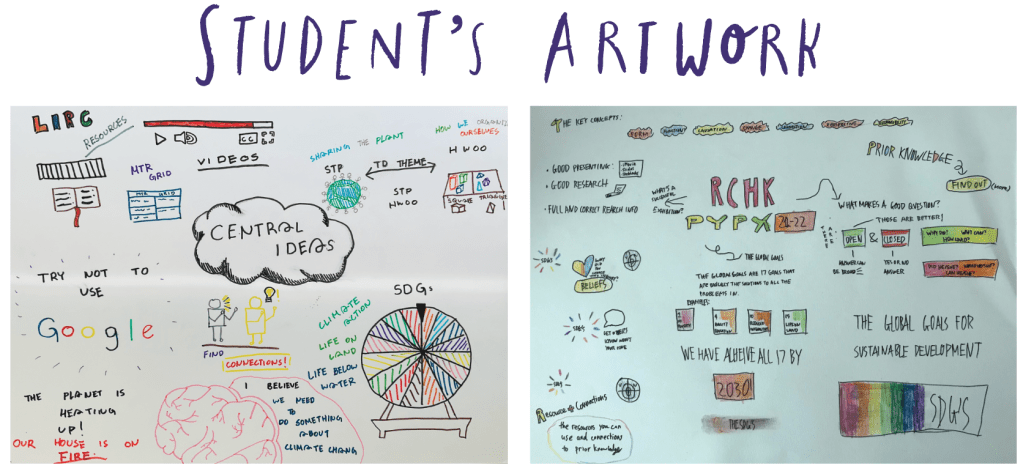 STUDENT'S ARTWORK
LIPC
RESOURCES
VIDEOS
CC
MTR
GRID
MTR GRID
SHARING THE PLANT
STP
TO THEME
STP
HWOO
HOW WE ORGANIZ
OURSELVES
HWOO
SQUARE TRIANGLE
CENTRAL
IDEAS
TRY NOT TO
USE
Google
FIND
CONNECTIONS!
SDGs
CLIMATE
ACTION
LIFE ON
LAND
LIFE BELOW
WATER
THE PLANET IS
HEATING
UP!
OUR HOUSE IS ON
FIRE.
I BELIEVE
WE NEED
TO
DO SOMETHING
ABOUT
CLIMATE CHANG
THE KEY CONCEPTS:
FORM
FUNCTION
CAUSATION
CHANGE
CONNECTION
PERSPECTIVE
RESPONSIBILITY
PRIOR KNOWLEDGE
FIND OUT
• GOOD PRESENTING:
• GOOD RESEARCH
• FULL AND CORRECT RESEARCH INFO
WHAT'S A
SUCCESSFUL
EXHIBITION?
RCHK
PYPX 21-22
WHAT MAKES A GOOD QUESTION?
THOSE ARE BETTER!
THERE
ARE
OPEN & CLOSED
ANSWER CAN
BE BROAD
YES OR NO
ANSWER
SDGS
BELIEFS
THE GLOBAL GOALS
THE GLOBAL GOALS ARE 17 GOALS THAT
ARE BASICALLY THE SOLUTIONS TO ALL THE
PROBLEMS IN.
EXAMPLES:
SDGS
WE HAVE ALHEIVE ALL 17 BY
2030!
THE SDGS
THE GLOBAL GOALS FOR
SUSTAINABLE DEVELOPMENT
SDGS
SDGS
Resource & Connections
the resources you can
use and connections
to prior knowledge